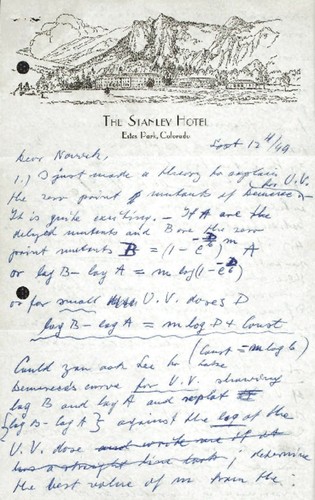 THE STANLEY HOTEL
Estes Park, Colorado
Sept 12th/49
Dear Novick,
1.) I just made a theory to explain
the zero point mutants of Demerec for U.V.
It is quite exciting. – If A are the
delayed mutants and B are the zero
point mutants B = (1 – e^-D/b)^m A
or log B – log A = m log(1 – e^-D/b)
or for small U.V. doses D
log B – log A = m log D + Const
(Const = – m log b)
Could you ask Lee to take
Demerec's curve for U.V. showing
log B and log A and replot
{log B – log A} against the log of the
U.V. dose and write me if it
has a straight line; determine
the best value of m from the